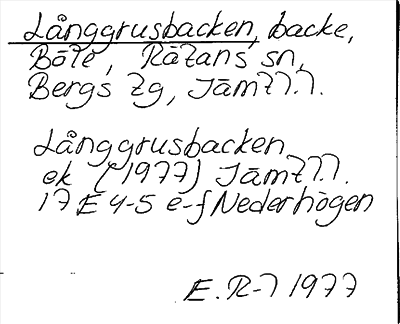 Långgrusbacken, backe,
Böle, Rätans sn,
Bergs tg, Jämtl.
Långgrusbacken
ek (1977) Jämtl.
17E 4-5 e-f Nederhögen
E. R-l 1977